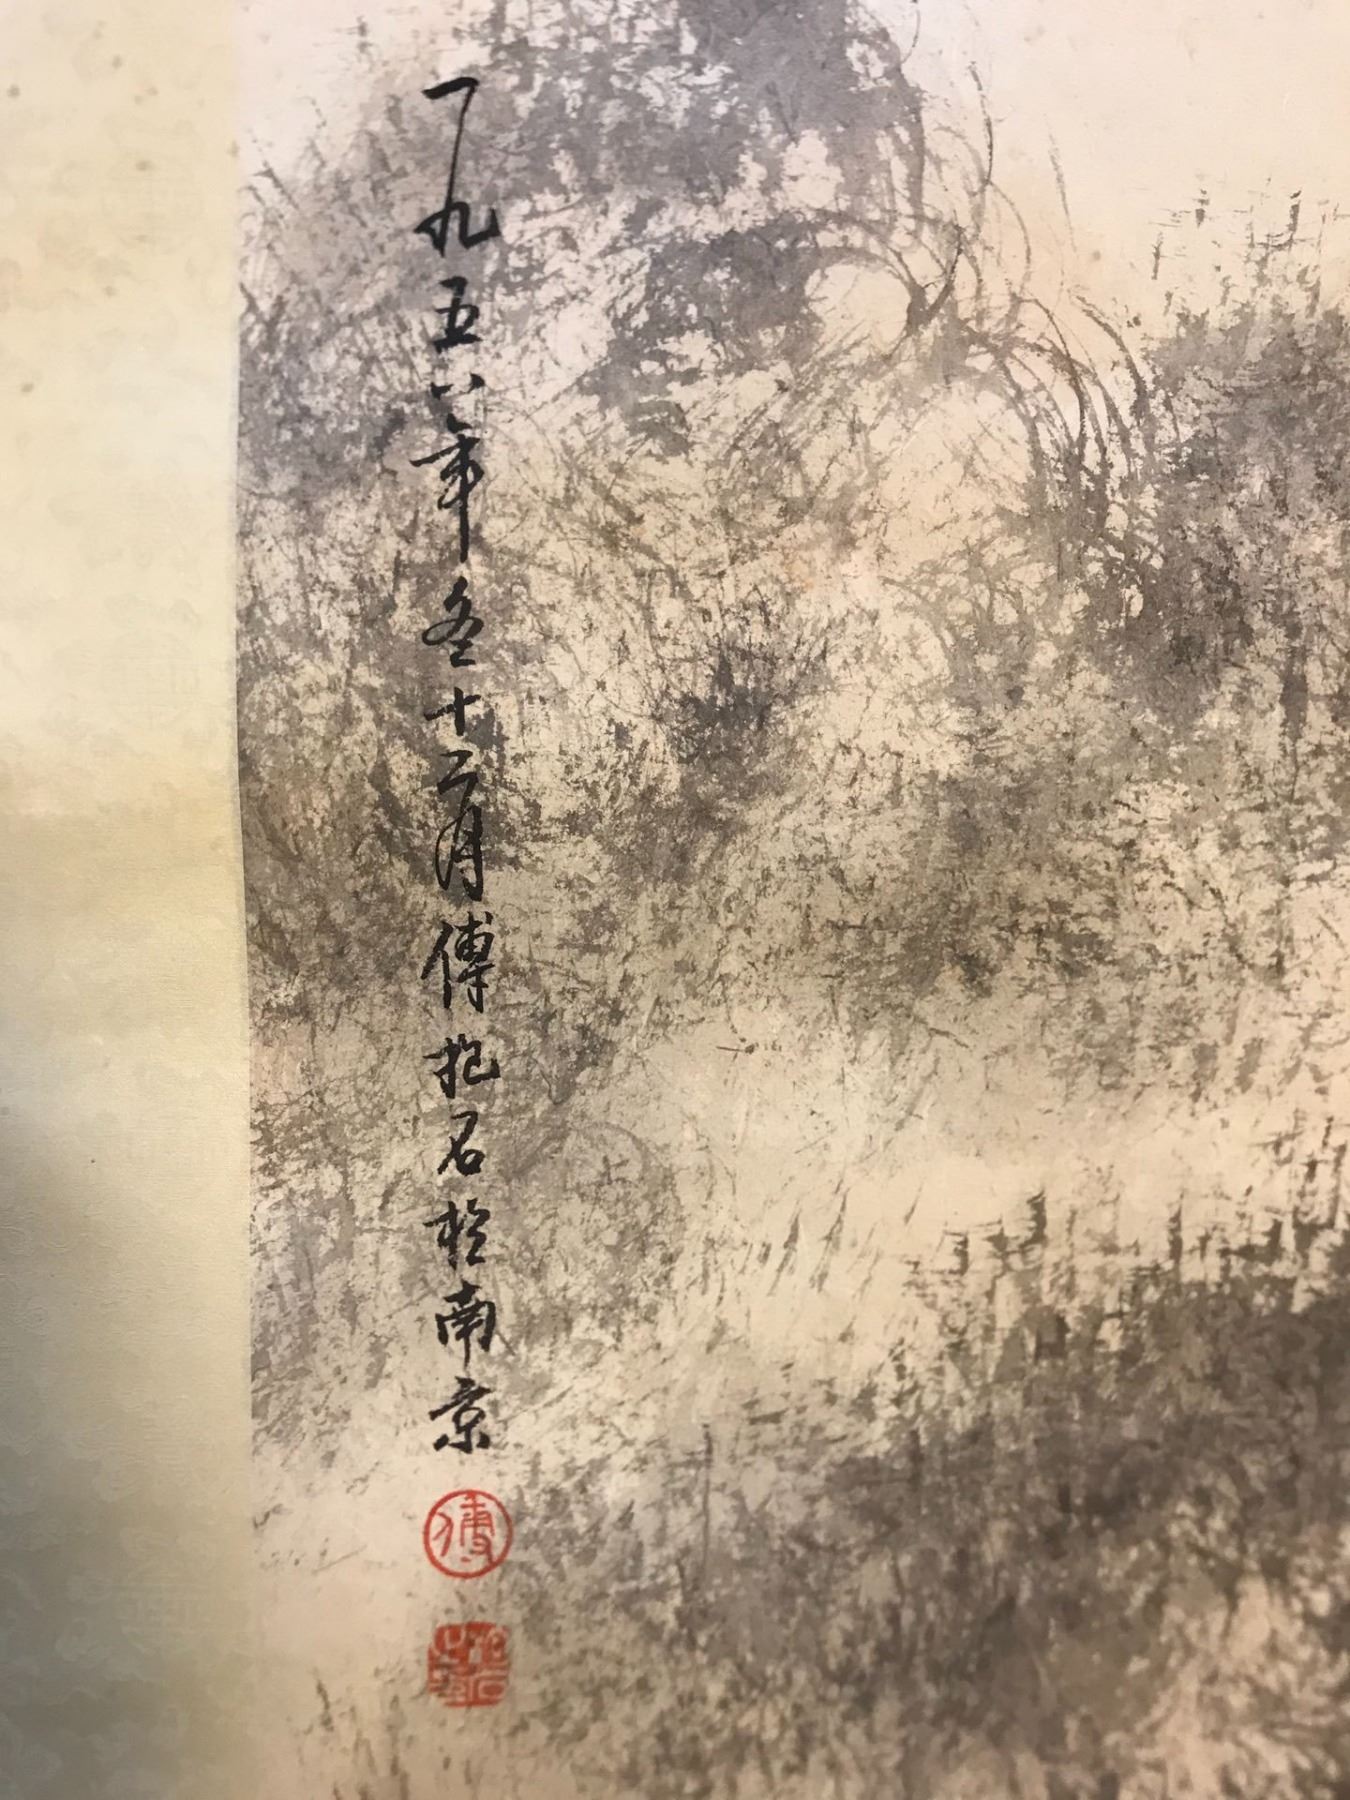 一九五八年冬十二月傅抱石於南京
傅
抱石之畫